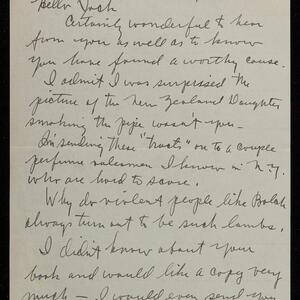 Hello Jack
Certainly wonderful to hear
from you as well as to know
you have found a worthy cause.
I admit I was surprised the
picture of the New Zealand Daughter
smoking the pipe wasn't you —
I'm sending these "tracts" on to a couple
perfume salesmen I know in N.Y.
who are hard to score.
Why do violent people like
always turn out to be such lambs.
I didn't know about your
book and would like a copy very
much — I would even send you